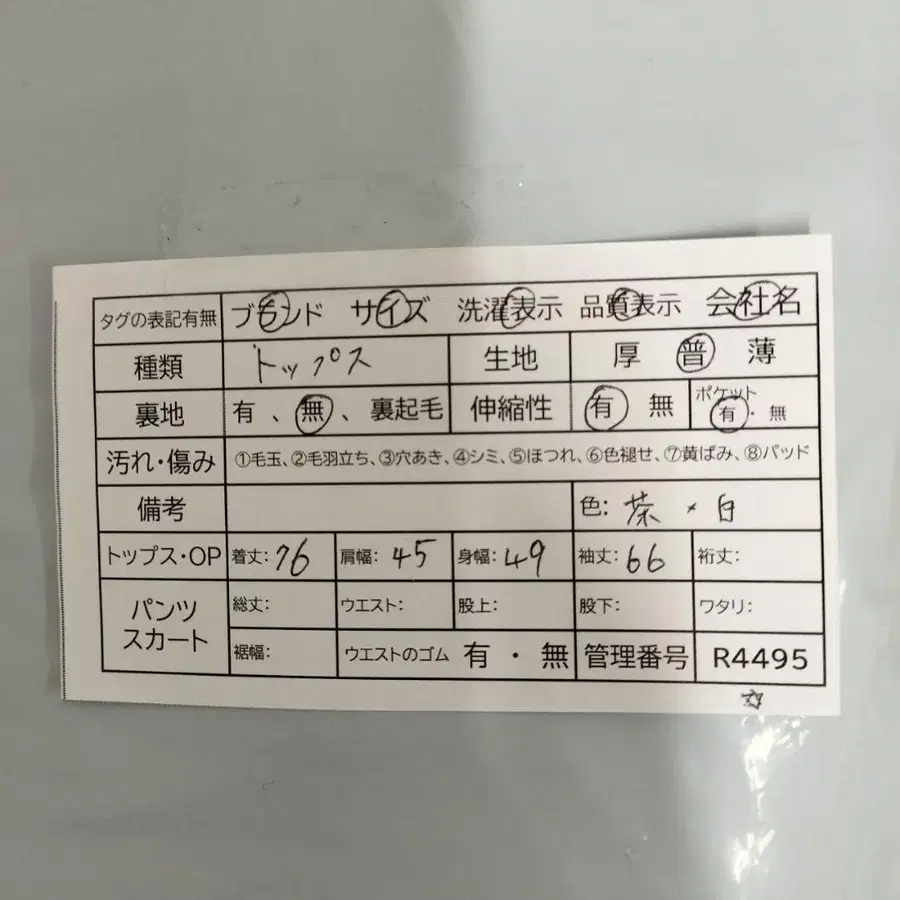 タグの表記有無 ブランド サイズ 洗濯表示 品質表示 会社名
種類 トップス 生地 厚 普 薄
裏地 有 、 無 、 裏起毛 伸縮性 有 無 ポケット 有 ・ 無
汚れ・傷み ①毛玉、②毛羽立ち、③穴あき、④シミ、⑤ほつれ、⑥色褪せ、⑦黄ばみ、⑧パッド
備考 色: 茶 × 白
トップス・OP 着丈: 76 肩幅: 45 身幅: 49 袖丈: 66 裄丈:
パンツ スカート 総丈: ウエスト: 股上: 股下: ワタリ:
裾幅: ウエストのゴム 有 ・ 無 管理番号 R4495